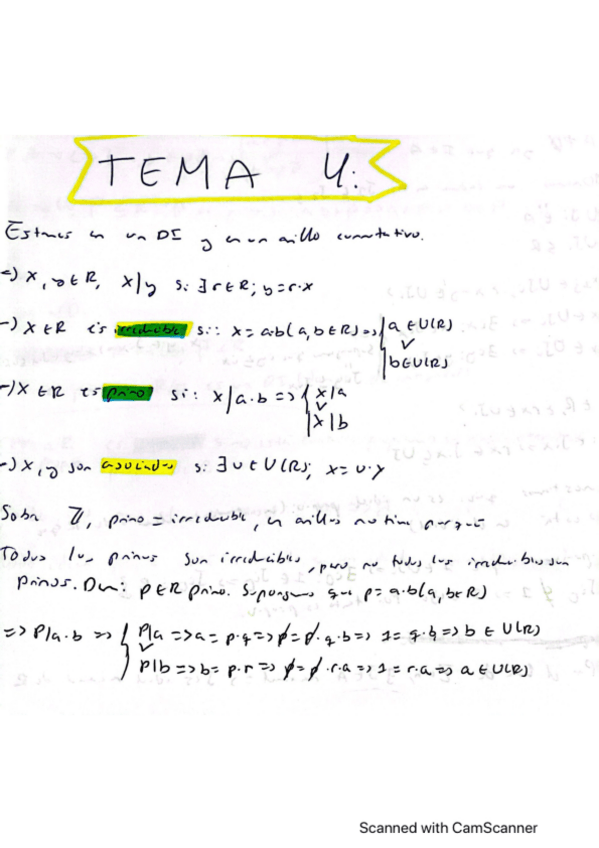 TEMA 4:
Estamos en un DI y en un anillo conmutativo.
-) x, y ∈ R, x|y si ∃ r ∈ R; y = r·x
-) x ∈ R es irreducible si: x = a·b (a, b ∈ R) => { a ∈ U(R)
∨
b ∈ U(R)
-) x ∈ R es primo si: x|a·b => { x|a
∨
x|b
-) x, y son asociados si ∃ u ∈ U(R); x = u·y
Sobre ℤ, primo = irreducible, en anillos no tiene porqué
Todos los primos son irreducibles, pero no todos los irreducibles son
primos. Dem: p ∈ R primo. Supongamos que p = a·b (a, b ∈ R)
=> p|a·b => { p|a => a = p·q => p = p·q·b => 1 = q·b => b ∈ U(R)
∨
p|b => b = p·r => p = p·r·a => 1 = r·a => a ∈ U(R)
Scanned with CamScanner